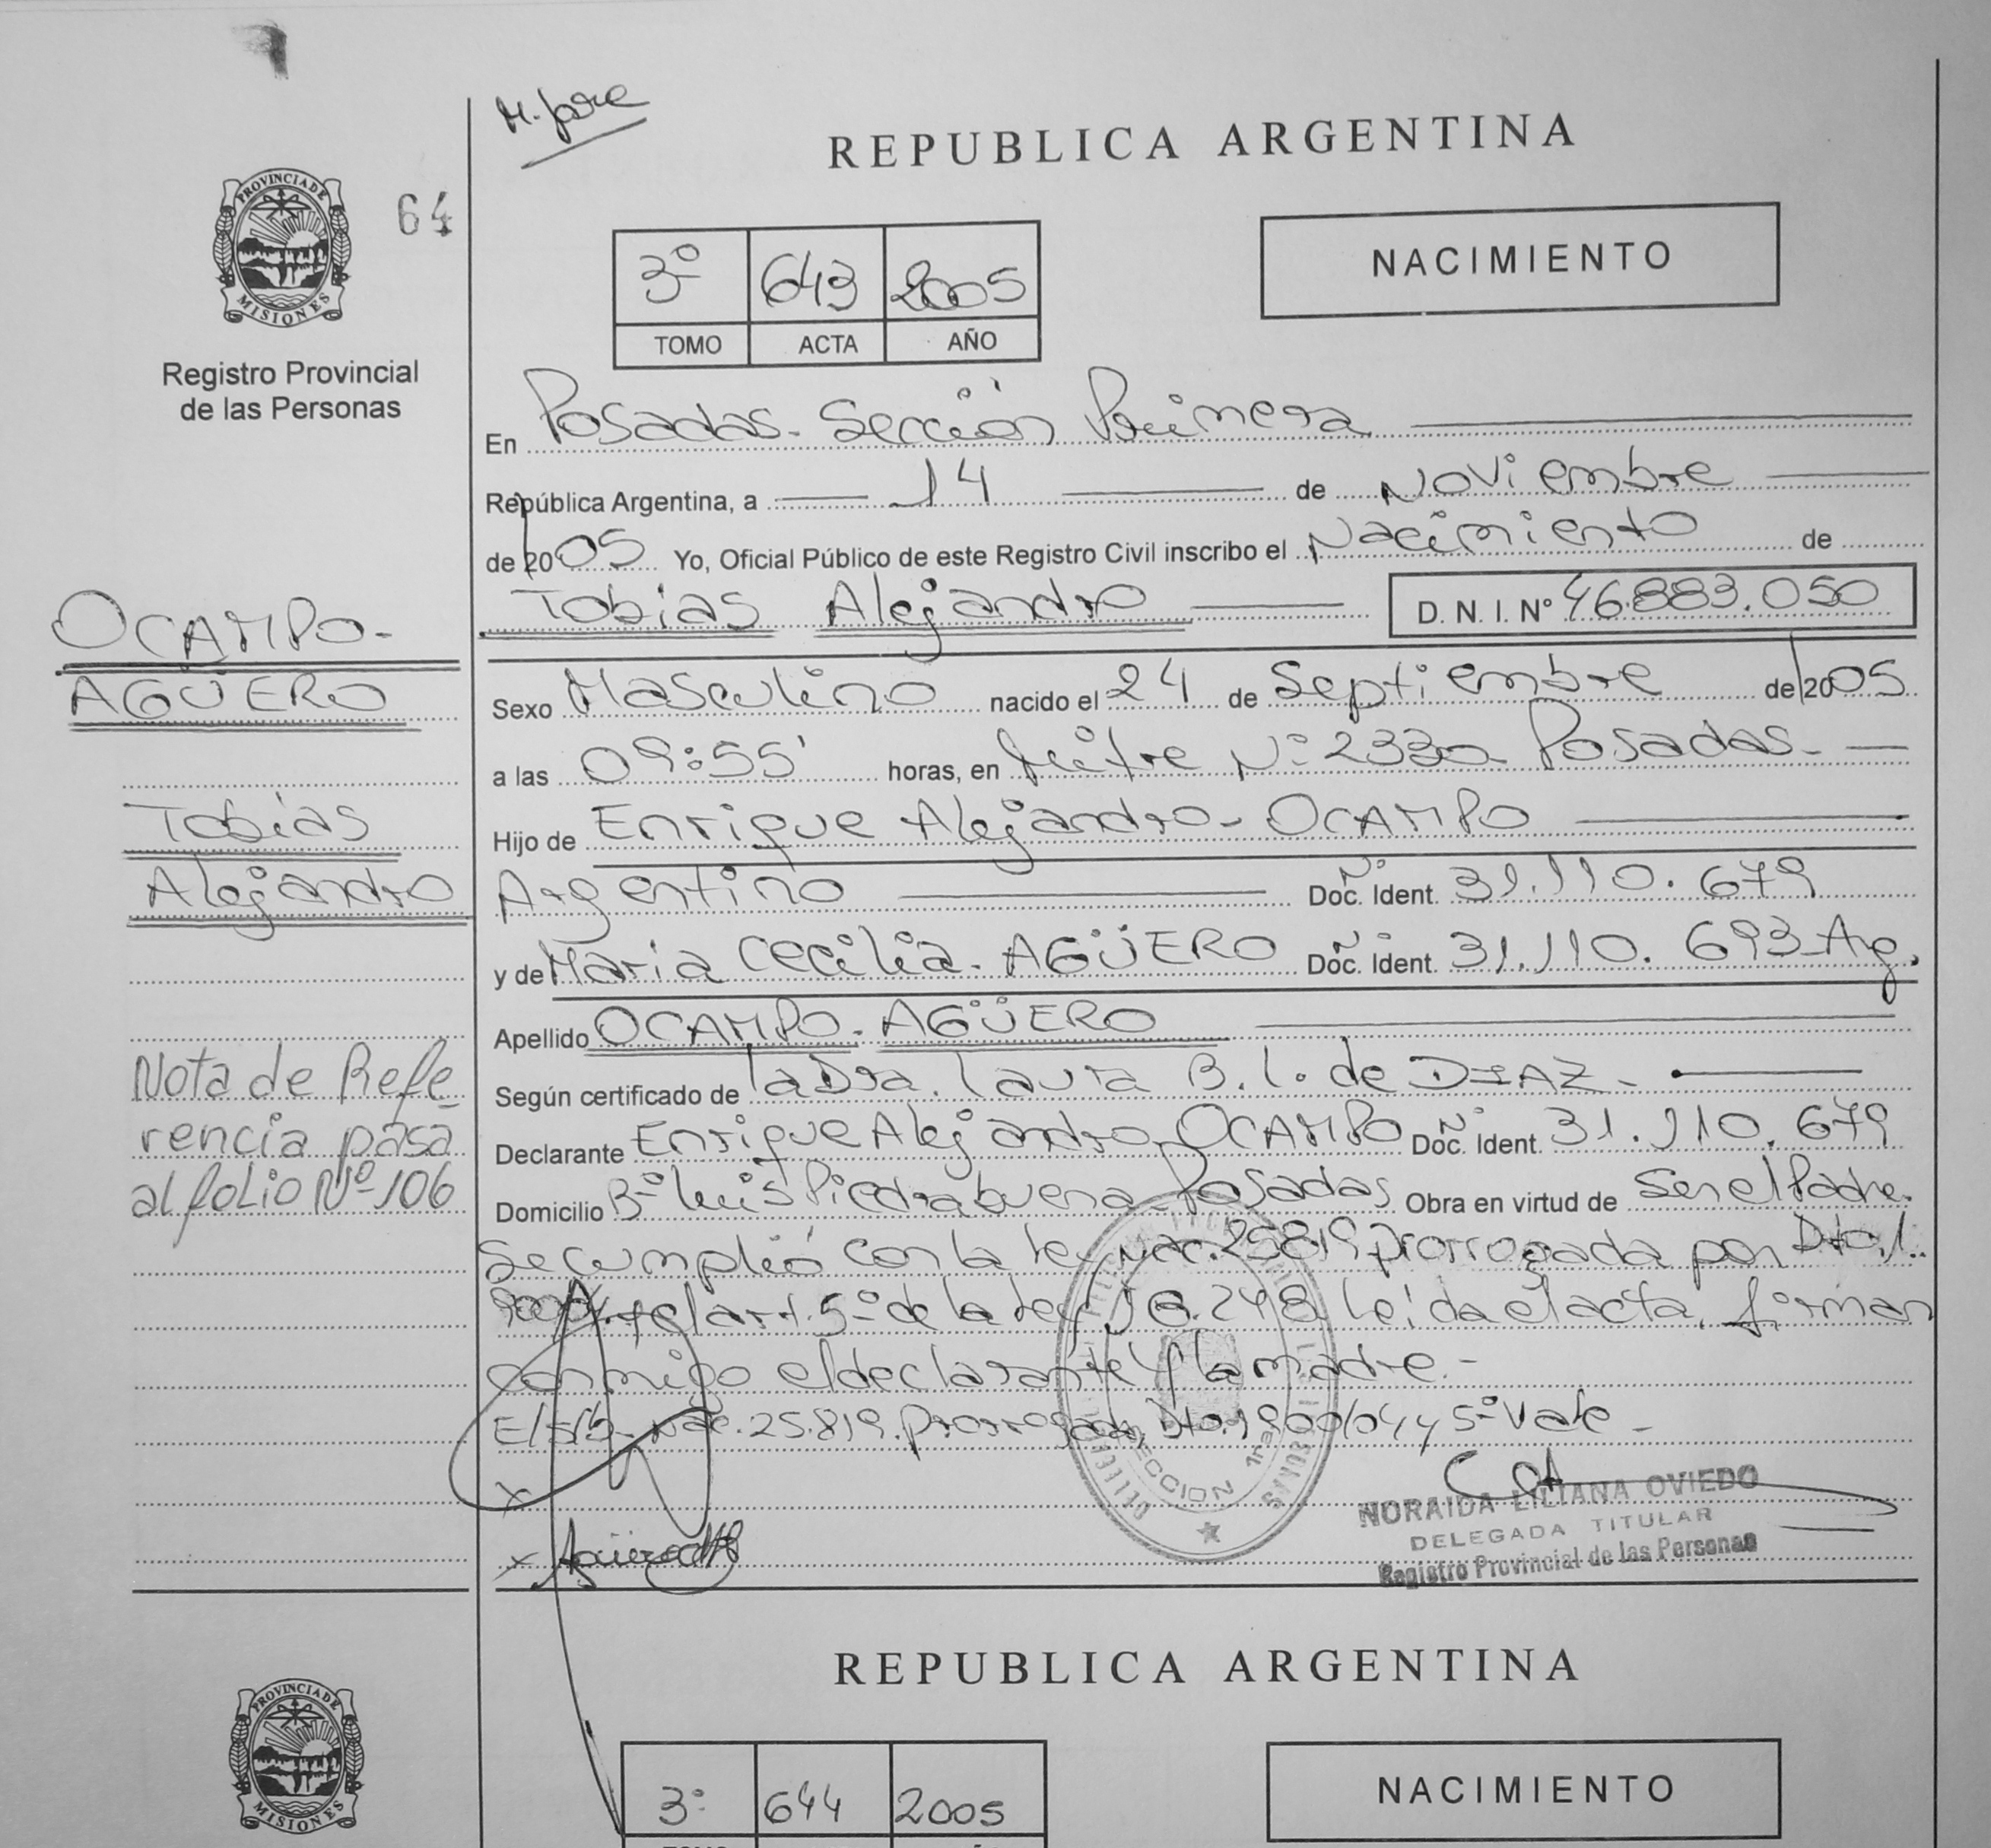 M. Jose
REPUBLICA ARGENTINA
PROVINCIA DE
MISIONES
64
3º 643 2005
TOMO ACTA AÑO
NACIMIENTO
Registro Provincial
de las Personas
En Posadas. Sección Primera
República Argentina, a 14 de Noviembre
de 2005 Yo, Oficial Público de este Registro Civil inscribo el Nacimiento de
Tobias Alejandro D. N. I. Nº 46.883.050
Sexo Masculino nacido el 24 de Septiembre de 2005
a las 09:55' horas, en Mitre Nº 2330 Posadas.
Hijo de Enrique Alejandro - OCAMPO
Argentino Nº Doc. Ident. 31.110.679
y de Maria Cecilia. AGÜERO Nº Doc. Ident. 31.110.693 Arg.
Apellido OCAMPO. AGÜERO
Según certificado de la Dra. Laura B. L. de DIAZ -
Declarante Enrique Alejandro. OCAMPO Nº Doc. Ident. 31.110.679
Domicilio Bº Luis Piedrabuena Posadas Obra en virtud de Ser el Padre.
Se cumplió con la Ley Nac. 25819 prorrogada por Dto. 1.
900/04 y el art. 5º de la Ley 18.248 Leída el acta, firman
conmigo el declarante y la madre.-
E/ Nac. 25.819. prorrogada Dto. 1900/04 y 5º Vale -
x
x Agüero
SECCION 1ra
NORAIDA LILIANA OVIEDO
DELEGADA TITULAR
Registro Provincial de las Personas
OCAMPO-
AGÜERO
Tobias
Alejandro
Nota de Refe
rencia pasa
al folio Nº 106
REPUBLICA ARGENTINA
PROVINCIA DE
MISIONES
3º 644 2005
NACIMIENTO